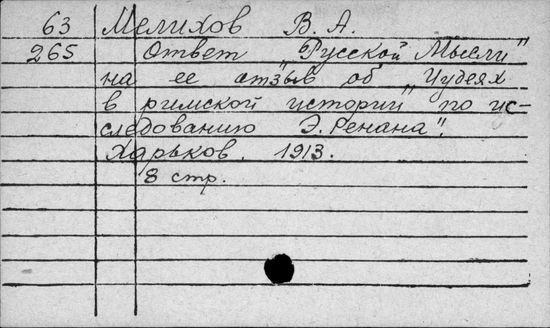 63 Мелихов В. А.
265 Ответ „Русской Мысли"
на ее отзыв об „Иудеях
в римской истории по ис-
следованию Э. Ренана".
Харьков. 1913.
8 стр.